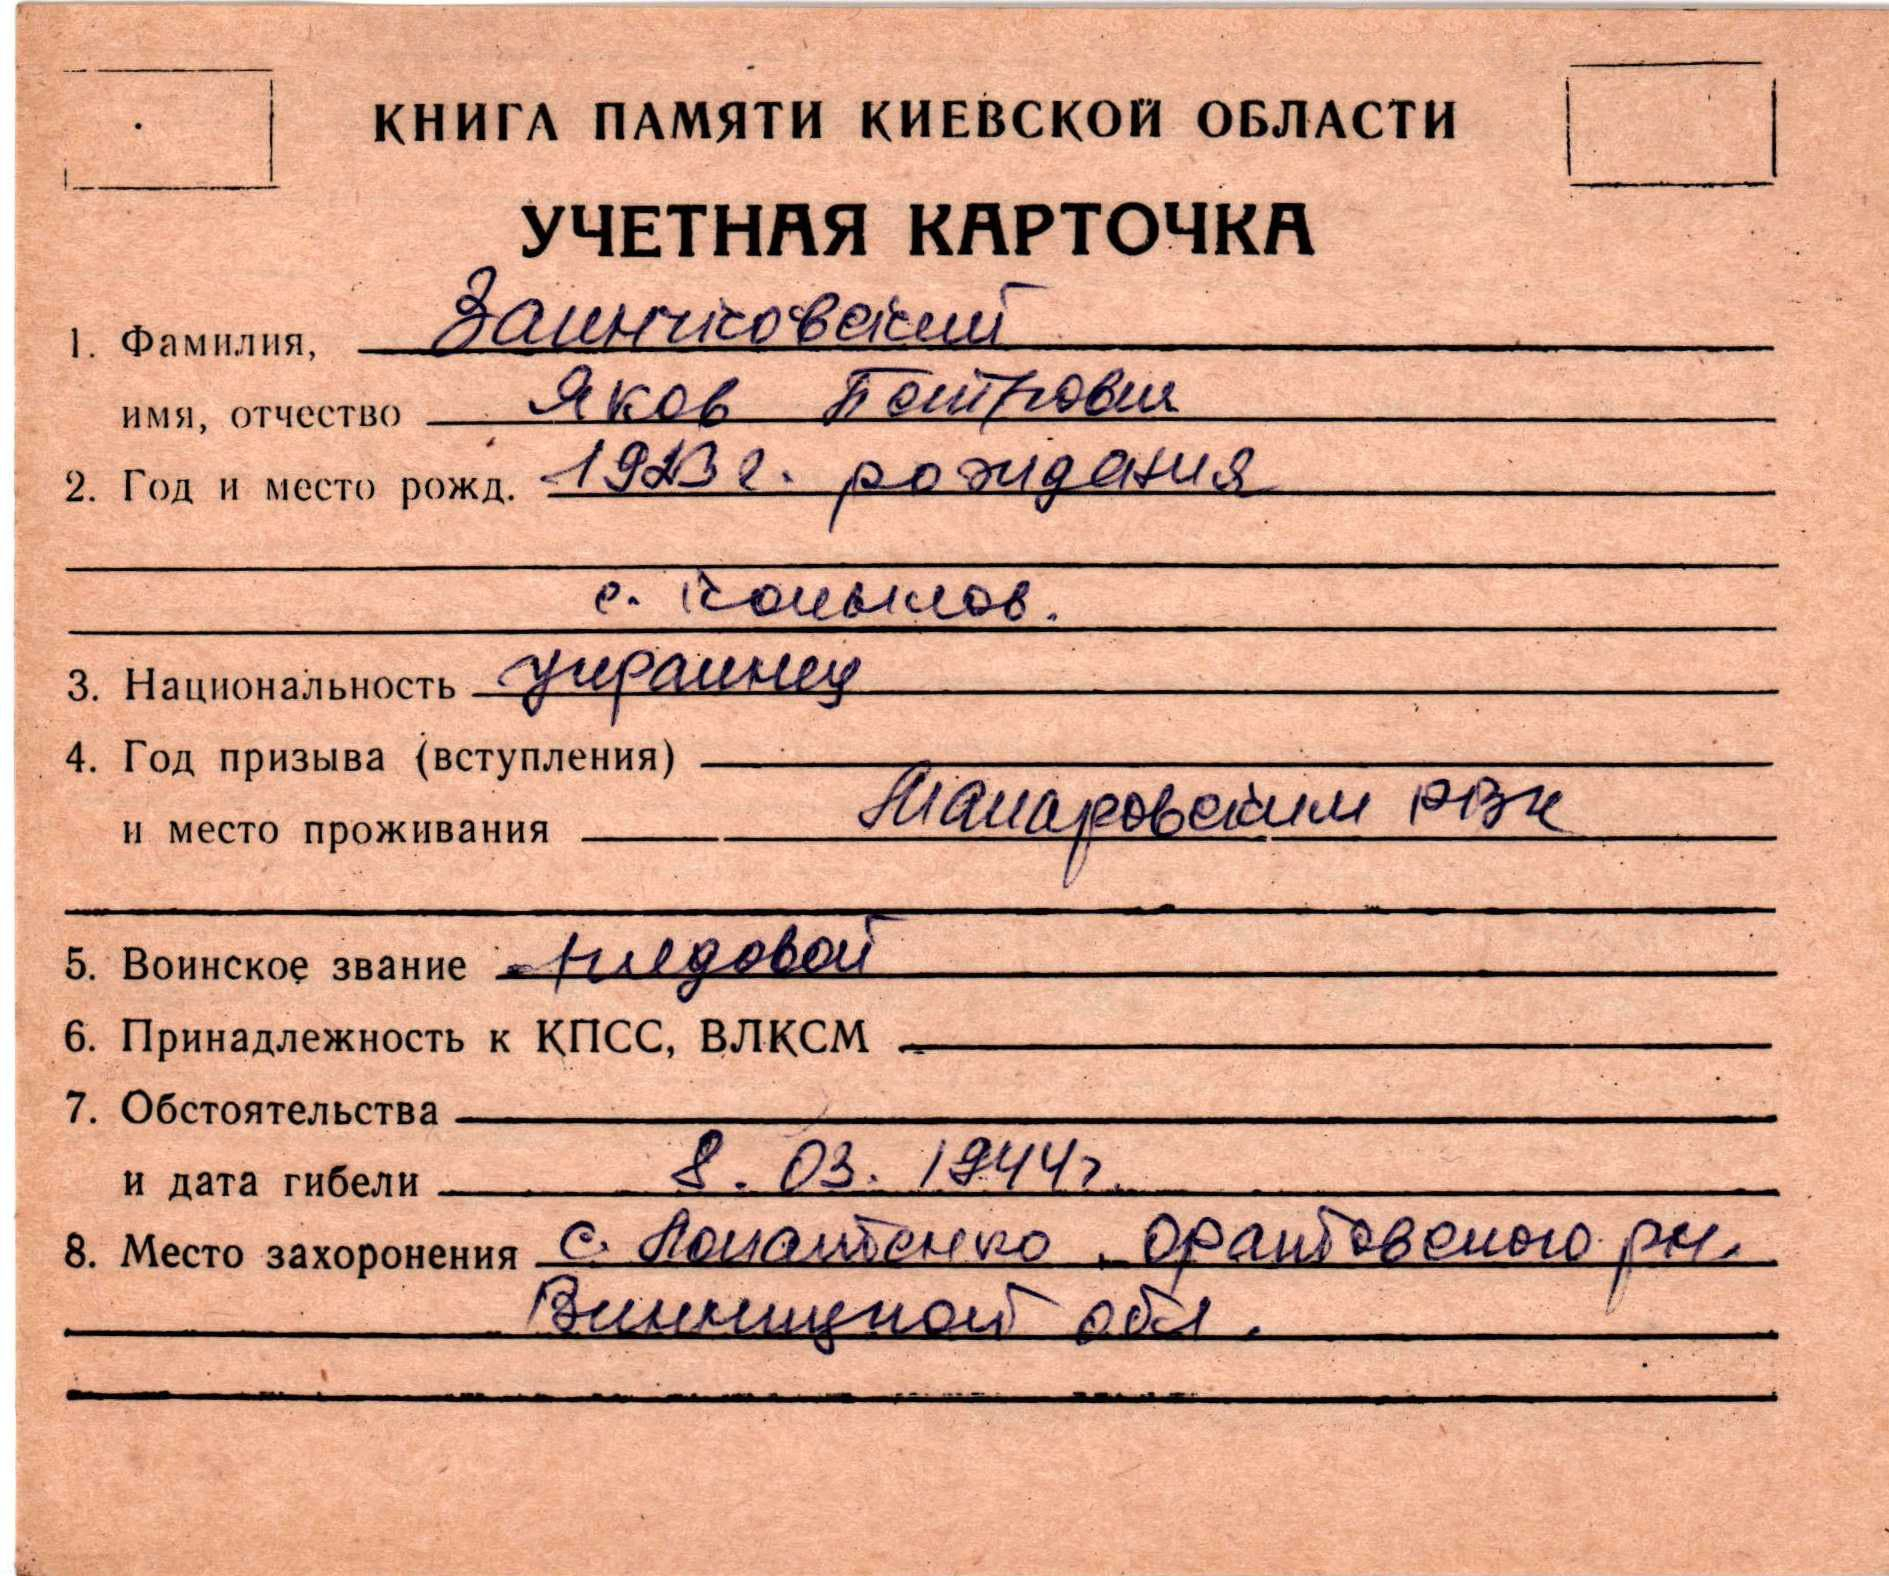 КНИГА ПАМЯТИ КИЕВСКОЙ ОБЛАСТИ
УЧЕТНАЯ КАРТОЧКА
1. Фамилия, Заинчковский
имя, отчество Яков Петрович
2. Год и место рожд. 1923 г. рождения
с. Копылов.
3. Национальность украинец
4. Год призыва (вступления)
и место проживания Макаровским РВК
5. Воинское звание рядовой
6. Принадлежность к КПСС, ВЛКСМ
7. Обстоятельства
и дата гибели 8. 03. 1944г.
8. Место захоронения с. оратовского рн.
Винницкой обл.